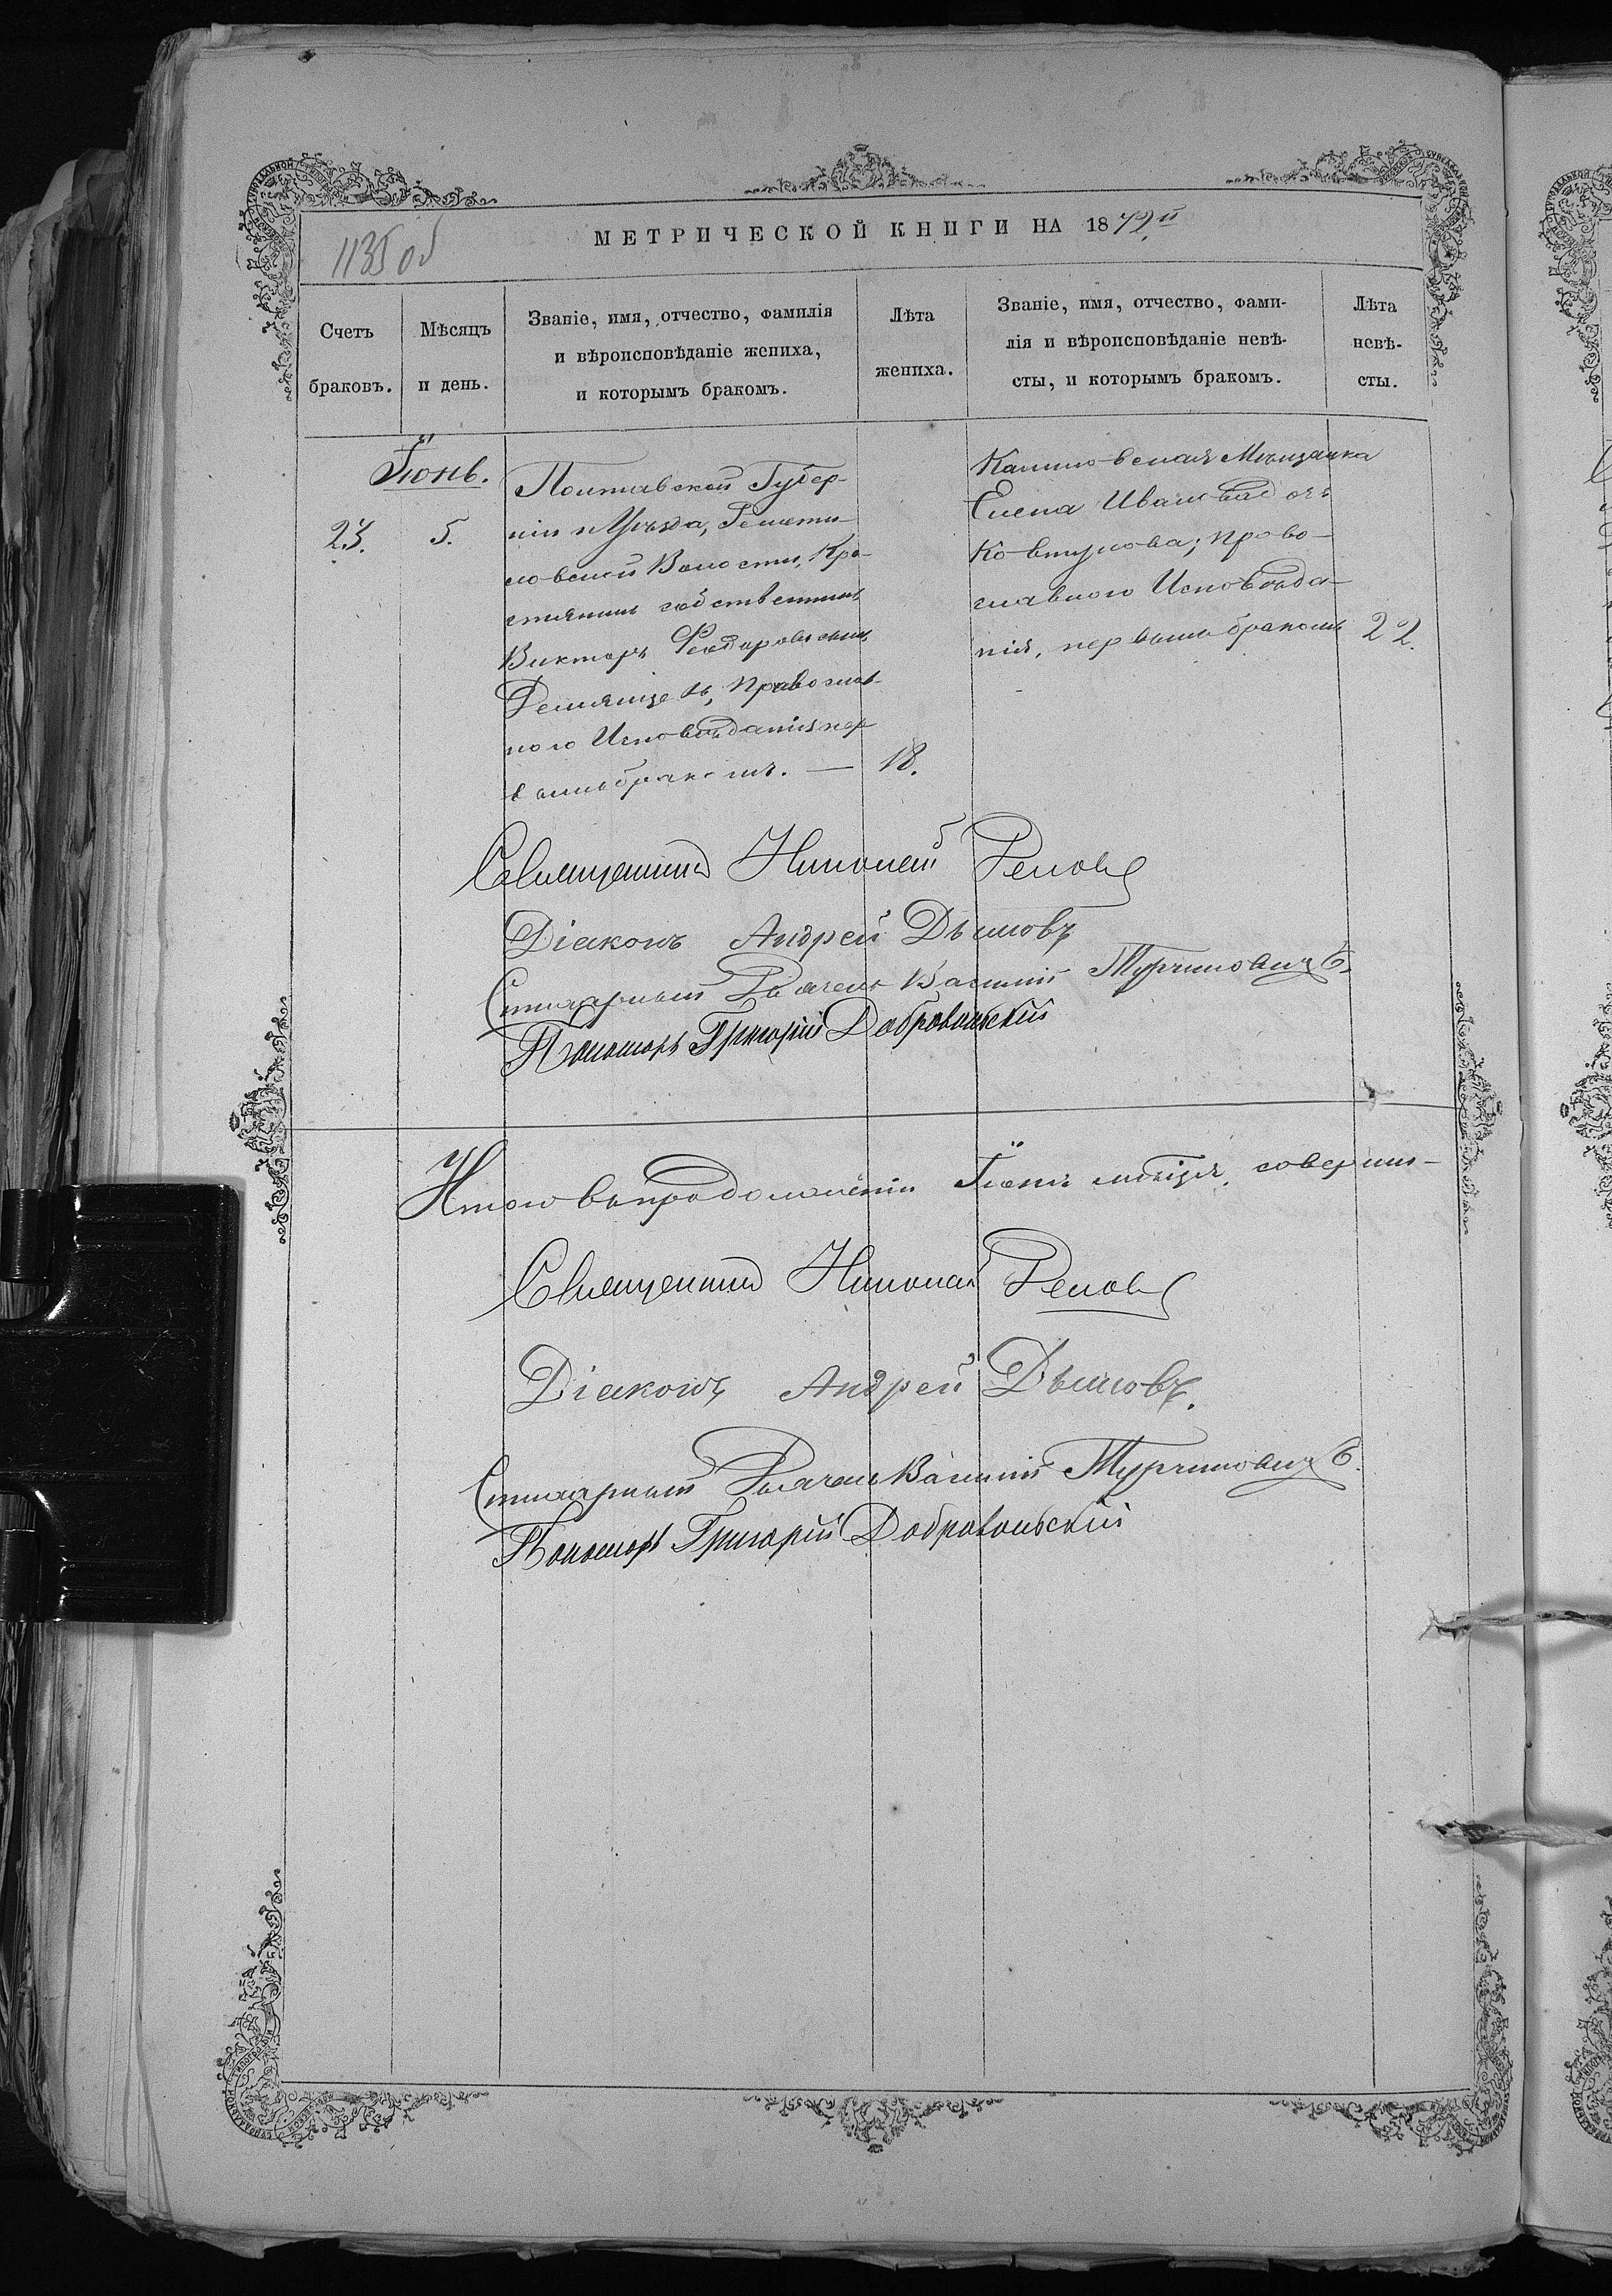 1135 об
МЕТРИЧЕСКОЙ КНИГИ НА 1879й
Счетъ браковъ.
Мѣсяцъ и день.
Званіе, имя, отчество, фамилія
и вѣроисповѣданіе жениха,
и которымъ бракомъ.
Лѣта жениха.
Званіе, имя, отчество, фами-
лія и вѣроисповѣданіе невѣ-
сты, и которымъ бракомъ.
Лѣта невѣ-
сты.
Іюнь.
23.
5.
Полтавской Губер-
ніи и Уѣзда, Решети-
ловской Волости, Кре-
стьянинъ собственникъ
Викторъ Феодоровъ сынъ
православ-
ного Исповѣданія пер
вымъ бракомъ. —
18.
Мѣщанка
Елена Иванова дочь
Ковтунова; право-
славного Исповѣда-
нія, первымъ бракомъ
22.
Священникъ Николай
Діаконъ Андрей Дымовъ
Стихарный Дьячекъ Василий Турчиновичъ
Пономарь Григорій Добровольскій
Итого въ продолженіи Іюнь мѣсяцъ соверши-
Священникъ Николай
Діаконъ Андрей Дымовъ.
Стихарный Дьячекъ Василий Турчиновичъ
Пономарь Григорій Добровольскій